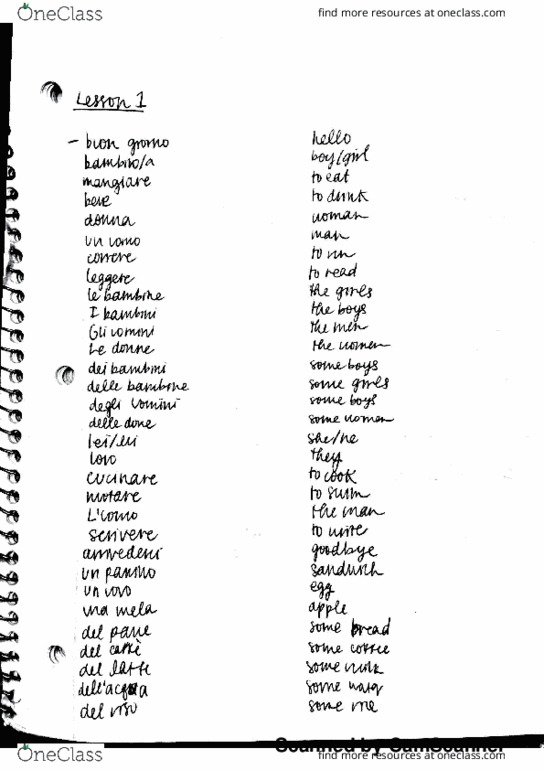 OneClass find more resources at oneclass.com
Lesson 1
- buon giorno hello
bambino/a boy/girl
mangiare to eat
bere to drink
donna woman
un uomo man
correre to run
leggere to read
le bambine the girls
I bambini the boys
Gli uomini the men
Le donne the women
dei bambini some boys
delle bambine some girls
degli uomini some boys
delle done some women
lei/lui she/he
loro they
cucinare to cook
nuotare to swim
L'uomo the man
scrivere to write
arrivederci goodbye
un panino sandwich
un uovo egg
una mela apple
del pane some bread
del caffè some coffee
del latte some milk
dell'acqua some water
del riso some rice
Scanned by CamScanner
OneClass find more resources at oneclass.com